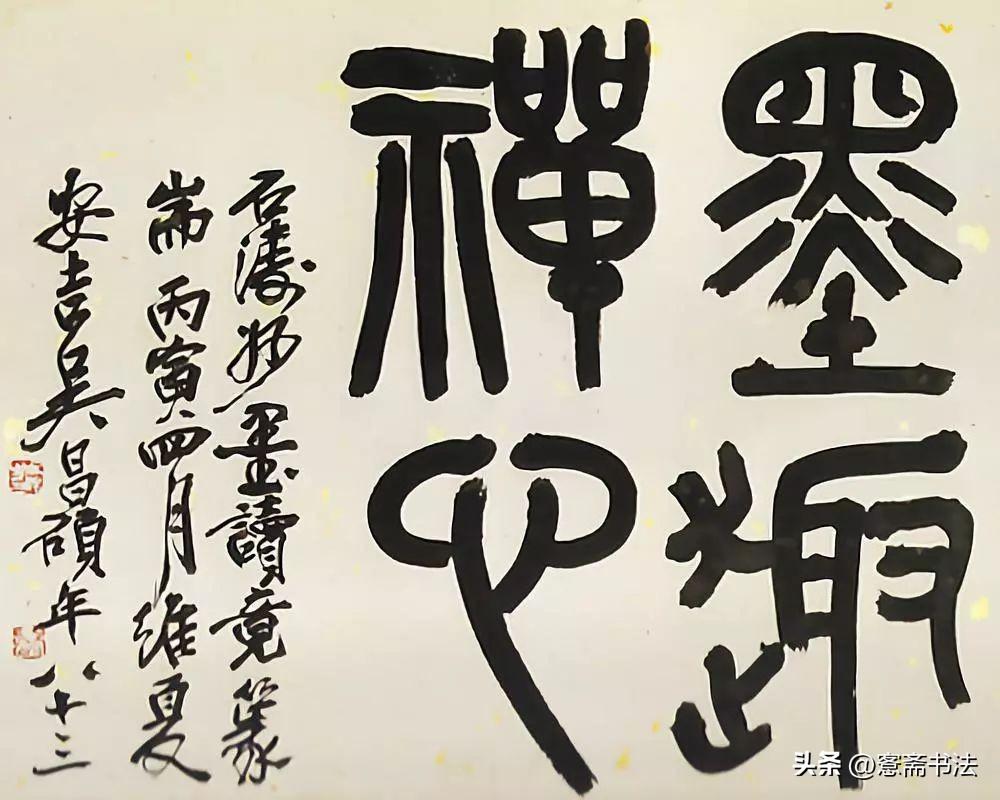 墨趣
禪心
石濤妙墨讀竟篆
耑丙寅四月維夏
安吉吳昌碩年八十三
头条 @愙斋书法